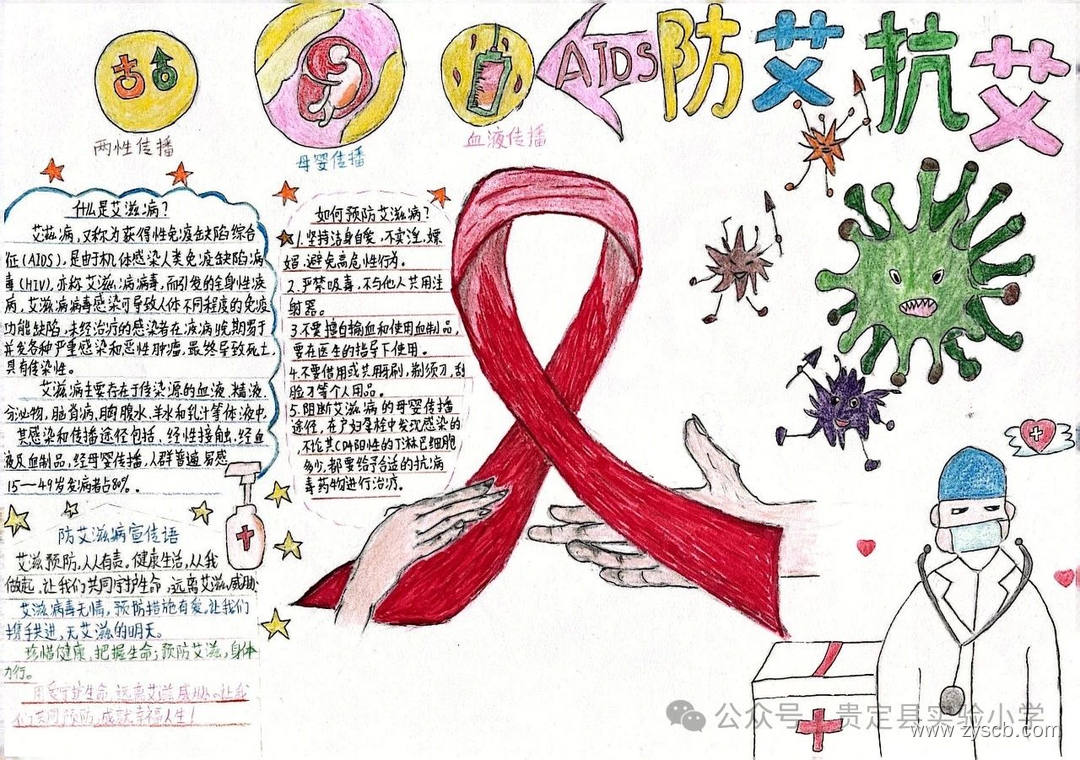 AIDS防艾抗艾
两性传播
母婴传播
血液传播
什么是艾滋病?
艾滋病,又称为获得性免疫缺陷综合
征(AIDS),是由于机体感染人类免疫缺陷病
毒(HIV),亦称艾滋病病毒,而引发的全身性疾
病,艾滋病病毒感染可导致人体不同程度的免疫
功能缺陷,未经治疗的感染者在疾病晚期易于
并发各种严重感染和恶性肿瘤,最终导致死亡,
具有传染性。
艾滋病主要存在于传染源的血液、精液、
分泌物、脑脊病,胸腹水、羊水和乳汁等体液中,
其感染和传播途径包括、经性接触、经血
液及血制品,经母婴传播,人群普遍易感
15—49岁发病者占80%。
如何预防艾滋病?
1.坚持洁身自爱,不卖淫、嫖
娼,避免高危性行为。
2.严禁吸毒,不与他人共用注
射器。
3.不要擅自输血和使用血制品,
要在医生的指导下使用。
4.不要借用或共用牙刷,剃须刀,刮
脸刀等个人用品。
5.阻断艾滋病的母婴传播
途径,在产妇身检中发现感染的
不论其CD4阳性的T淋巴细胞
多少,都要给予合适的抗病
毒药物进行治疗。
防艾滋病宣传语
艾滋预防,人人有责。健康生活,从我
做起,让我们共同守护生命,远离艾滋威胁
艾滋病毒无情,预防措施有爱,让我们
携手共进,无艾滋的明天。
珍惜健康,把握生命;预防艾滋,身体
力行。
用爱守护生命,远离艾滋威胁。让我
们共同预防,成就幸福人生!
公众号·贵定县实验小学
www.zyscb.com